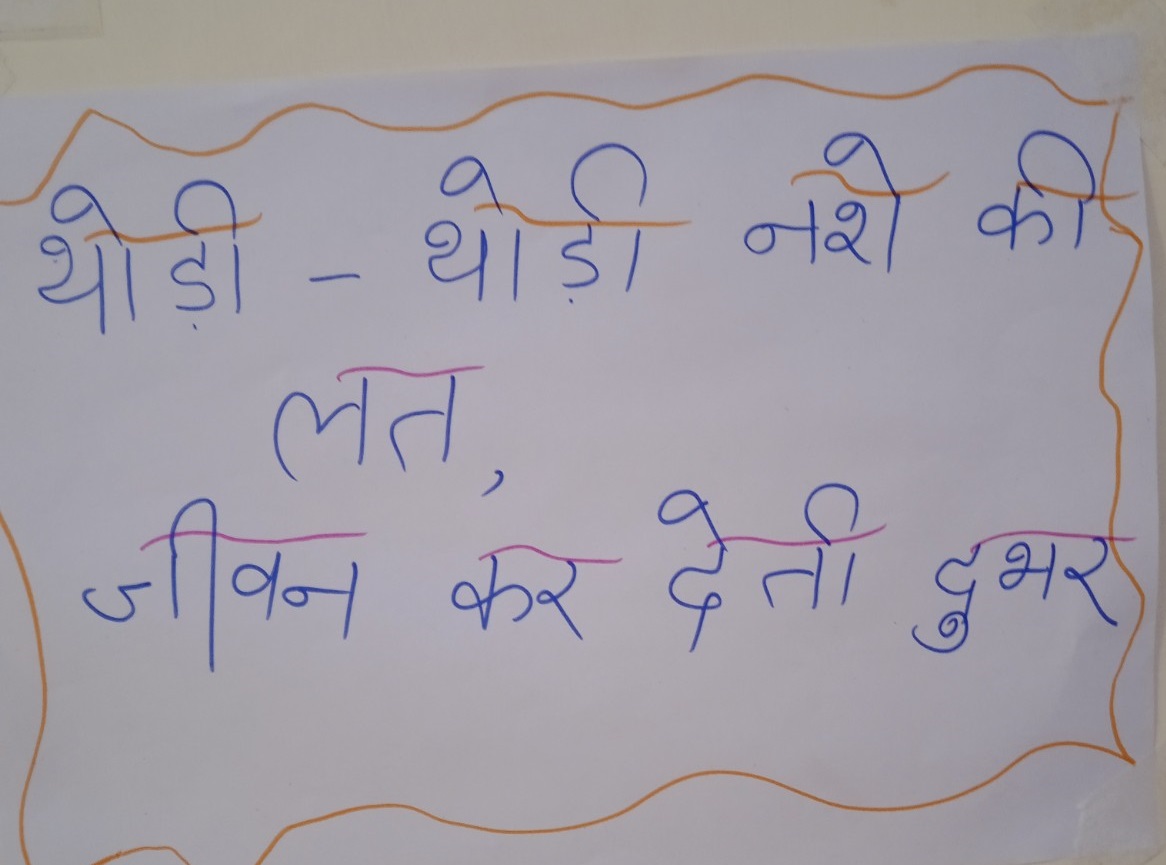 थोड़ी - थोड़ी नशे की
लत,
जीवन कर देती दुभर